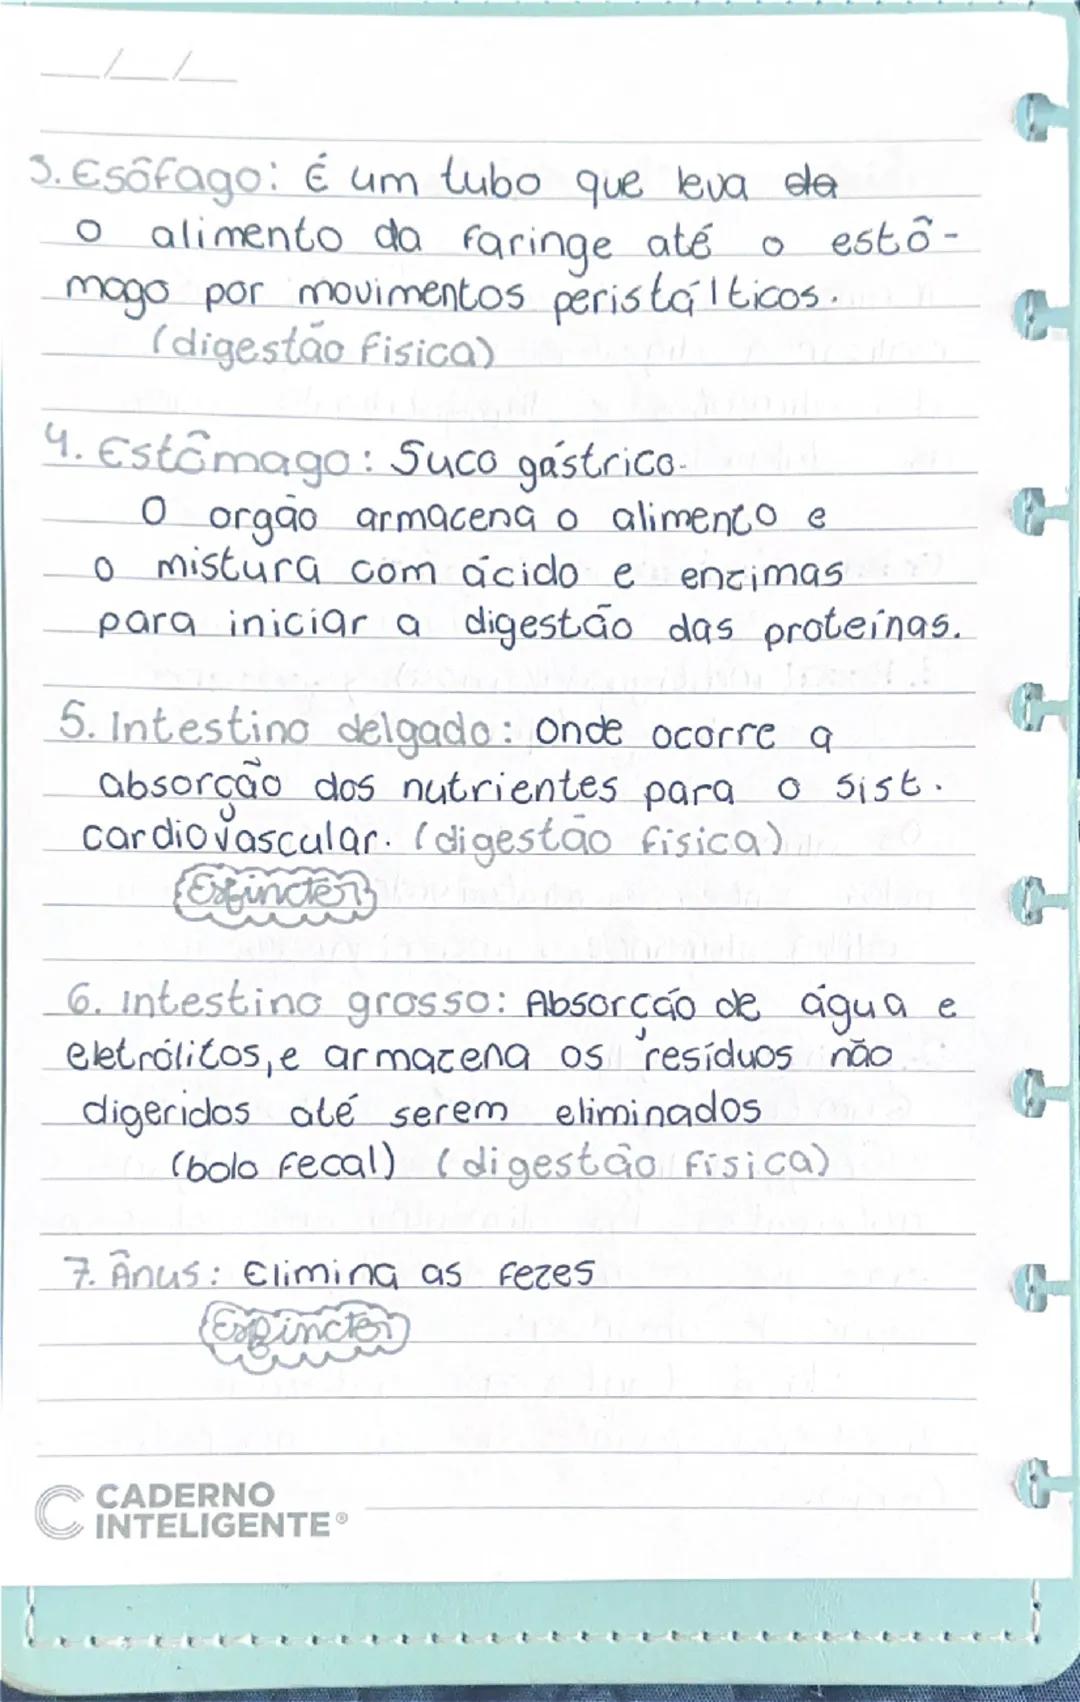 __/__/__
3. Esôfago: É um tubo que leva da
o alimento da faringe até o estô-
mago por movimentos peristálticos.
(digestão física)
4. Estômago: Suco gástrico.
O orgão armazena o alimento e
o mistura com ácido e enzimas
para iniciar a digestão das proteínas.
5. Intestino delgado: Onde ocorre a
absorção dos nutrientes para o sist.
cardiovascular. (digestão física)
Esfíncter
6. Intestino grosso: Absorção de água e
eletrólitos, e armazena os resíduos não
digeridos até serem eliminados
(bolo fecal) (digestão física)
7. Ânus: Elimina as fezes
Esfíncter
CADERNO
INTELIGENTE®